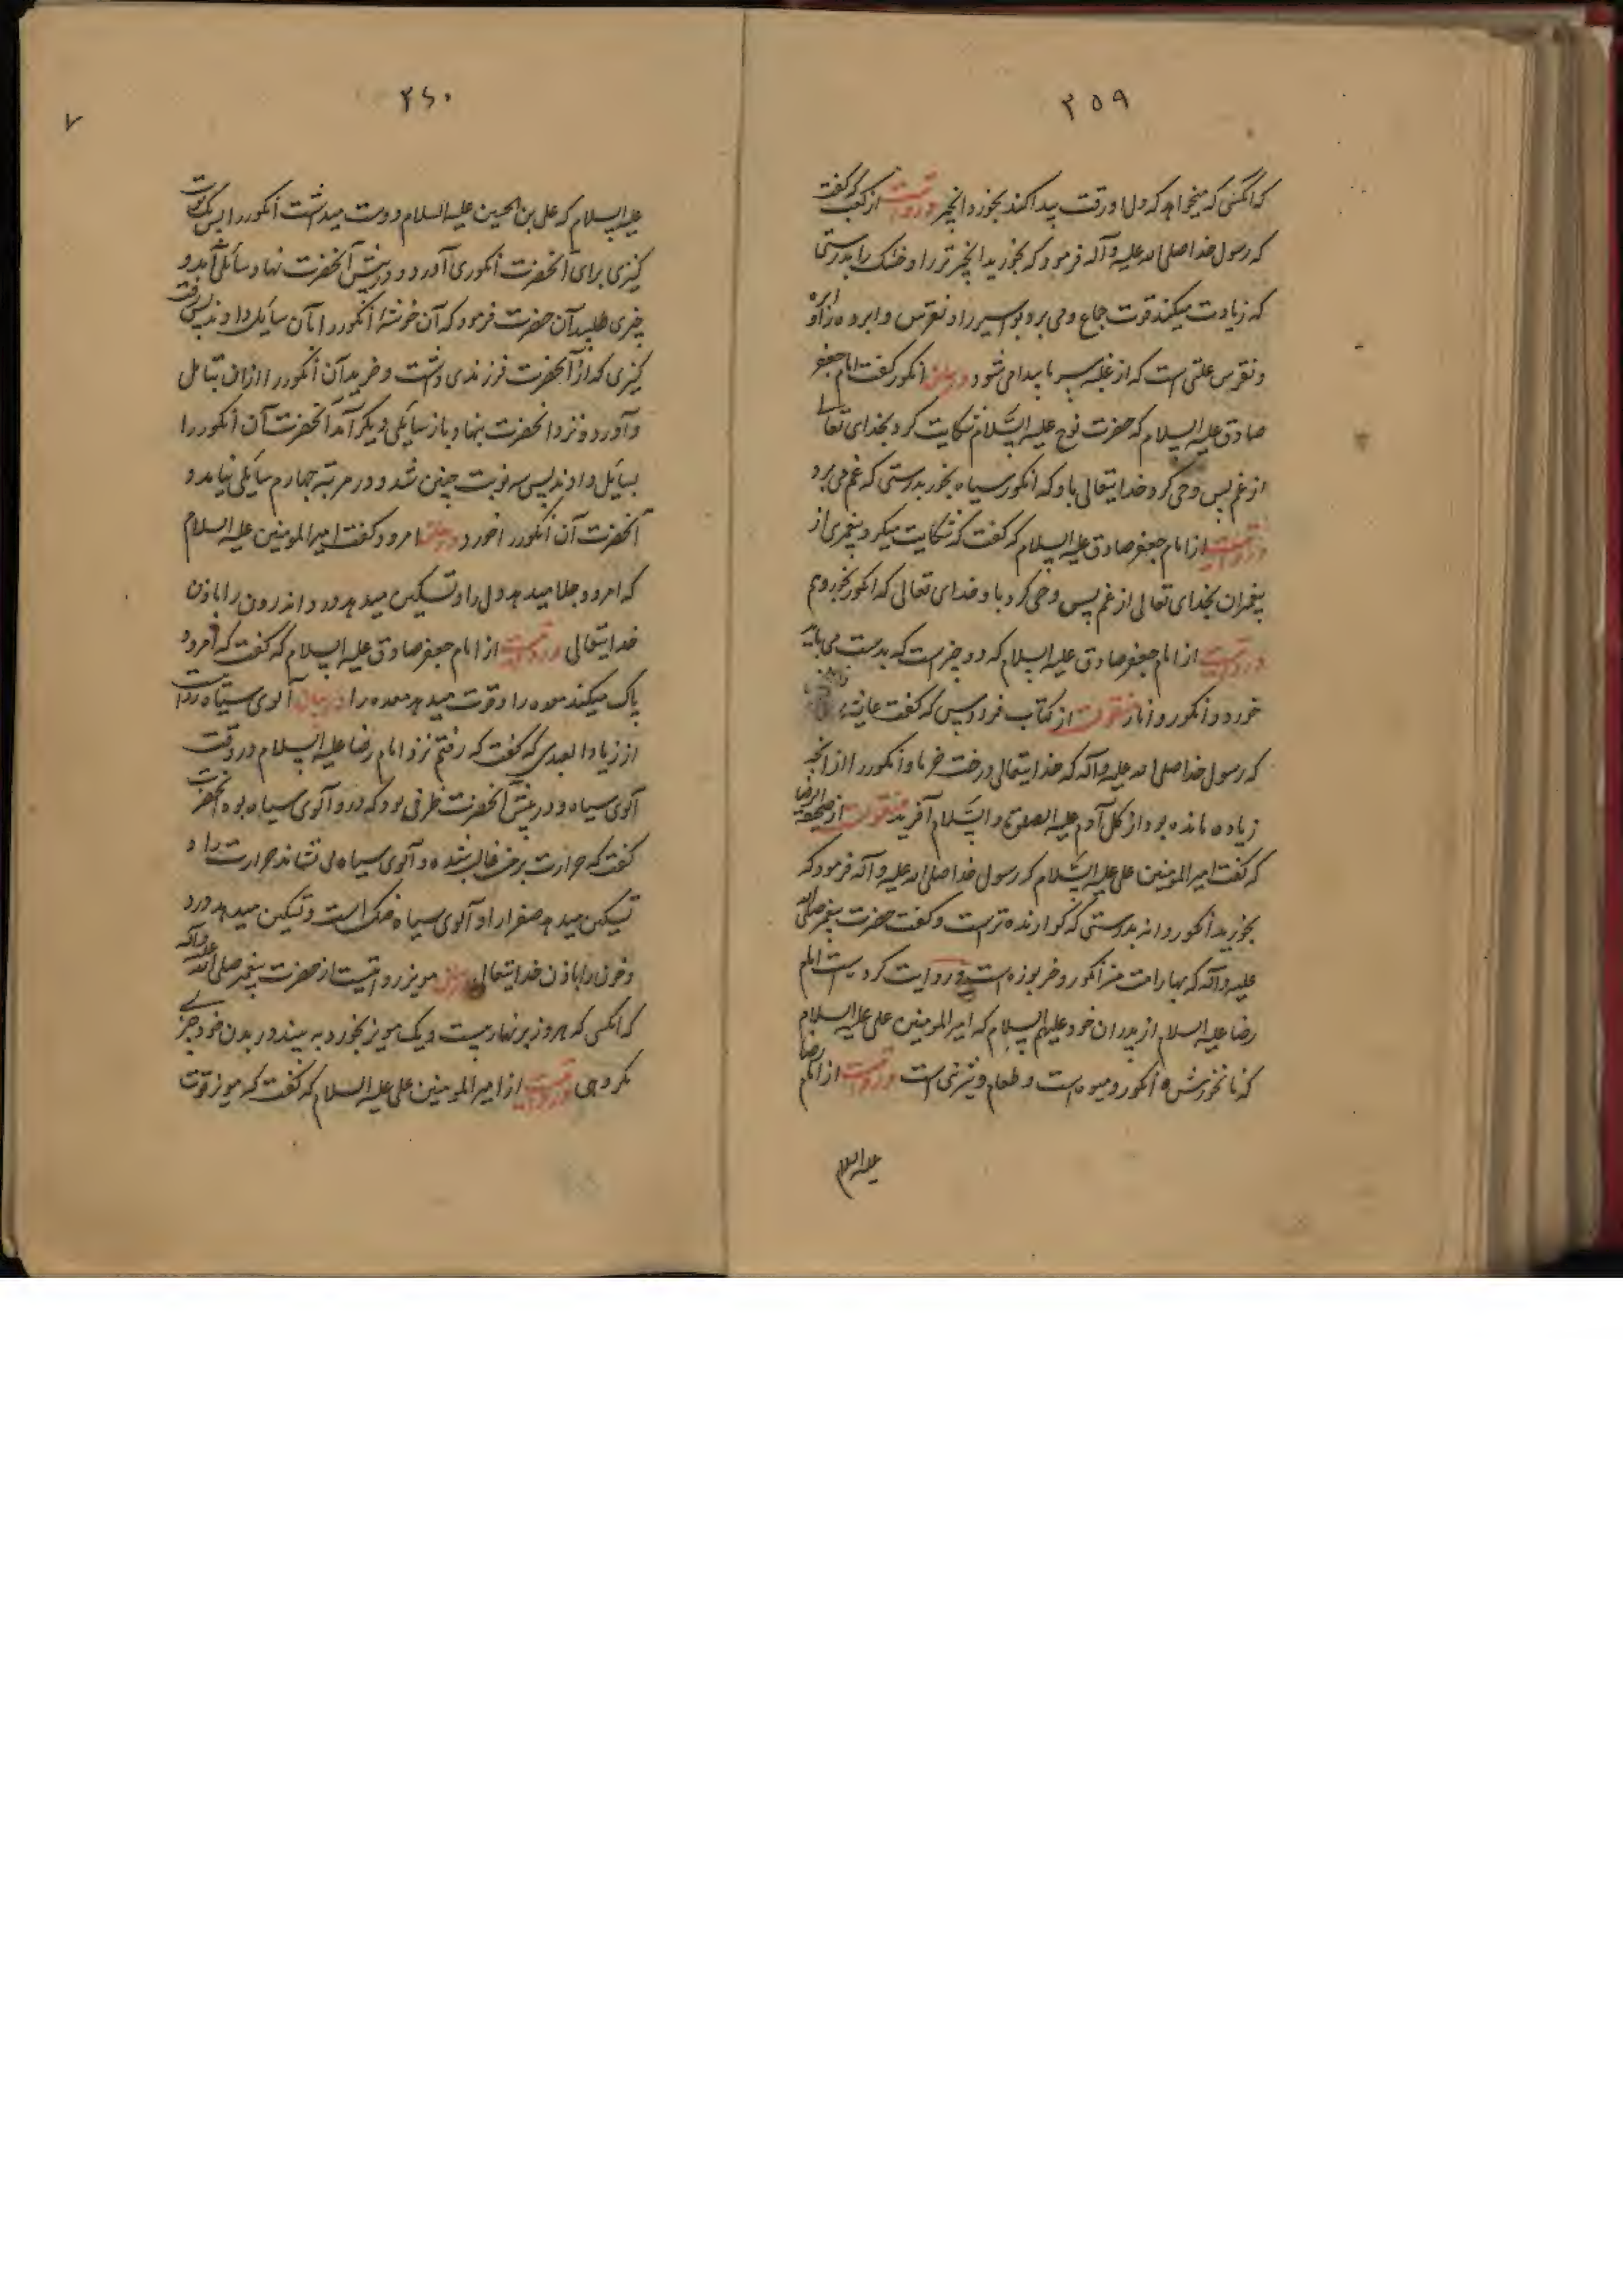 ۲۵۹
که انکسی که میخواهد که دل او رقت پیدا کند بخورد انجیر و روایتست از کعب که گفت
که رسول خدا صلی الله علیه و آله فرمود که بخورید انجیر تر را و خشک را بدرستی
که زیادت میکند قوت جماع و می برد بواسیر را و نقرس و ابرده را و ابرده
و نقرس علتی است که از غلبه سرما پیدا می شود در بیان انکور گفت امام جعفر
صادق علیه السلام که حضرت نوح علیه السّلام شکایت کرد بخدای تعالی
از غم پس وحی کرد خدایتعالی باو که انکور سیاه بخور بدرستی که غم می برد
و روایتست از امام جعفر صادق علیه السلام که گفت که شکایت میکرد پیغمبری از
پیغمبران بخدای تعالی از غم پس وحی کرد باو خدای تعالی که انکور بخور و هم
و روایتست از امام جعفر صادق علیه السلام که دو چیزست که بدست می باید
خورد و انکور و انار منقولست از کتاب فردوس که گفت عایشه
که رسول خدا صلی الله علیه و آله که خدایتعالی درخت خرما و انکور را از انچه
زیاده مانده بود از کل آدم علیه الصلوة و السّلام آفرید منقولست از صحیفه الرضا
که گفت امیر المومنین علی علیه السّلام که رسول خدا صلی الله علیه و آله فرمود که
بخورید انکور دانه بدرستی که کوارنده ترست و گفت حضرت پیغمبر صلی الله
علیه و آله که بهار امت من انکور و خربوزه است و روایت کردست امام
رضا علیه السلام از پدران خود علیهم السلام که امیر المومنین علی علیه السلام
که نانخورش انکور و میوه است و طعام و شیرینی است و روایتست از امام رضا
علیه السلام
۲۶۰
۷
علیه السلام که علی بن الحسین علیه السلام دوست میداشت انکور را پس یک نوبت
کنیزی برای آنحضرت انکوری آورد و در پیش آنحضرت نهاد سائلی آمد و
چیزی طلبید آن حضرت فرمود که آن خوشه انکور را بآن سایل دادند پس رفت
کنیزی که از آنحضرت فرزندی داشت و خرید آن انکور را ازان سایل
و آورد و نزد آنحضرت بنهاد باز سایلی دیکر آمد آنحضرت آن انکور را
بسایل دادند پس سه نوبت چنین شد و در مرتبه چهارم سایلی نیامد و
آنحضرت آن انکور را خورد در بیان امرود گفت امیر المومنین علیه السلام
که امرود جلا میدهد دل را و تسکین میدهد درد اندرون را باذن
خدایتعالی و روایتست از امام جعفر صادق علیه السلام که گفت که امرود
پاک میکند معده را و قوت میدهد معده را در بیان آلوی سیاه روایتست
از زیاد که گفت که رفتم نزد امام رضا علیه السلام در وقت
آلوی سیاه و در پیش آنحضرت ظرفی بود که درو آلوی سیاه بود آنحضرت
گفت که حرارت بر من غالب شده و آلوی سیاه می نشاند حرارت را و
تسکین میدهد صفرا را و آلوی سیاه خشک است و تسکین میدهد درد
و خون را باذن خدایتعالی در بیان مویز روایتست از حضرت پیغمبر صلی الله علیه و آله
که انکسی که هر روز بر نهار بیست و یک مویز بخورد به بیند در بدن خود چیزی
مکروهی و روایتست از امیر المومنین علی علیه السلام که گفت که مویز قوت